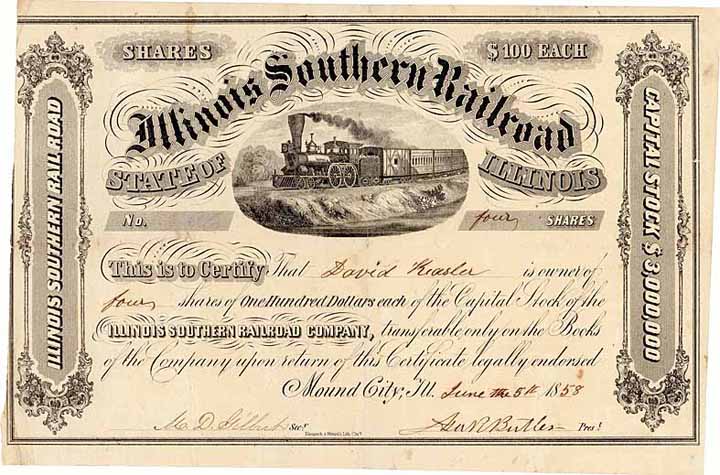 SHARES
$100 EACH
Illinois Southern Railroad
STATE OF ILLINOIS
ILLINOIS SOUTHERN RAILROAD
CAPITAL STOCK $3,000,000
No.
four SHARES
This is to Certify That David Keasler is owner of
four shares of One Hundred Dollars each of the Capital Stock of the
ILLINOIS SOUTHERN RAILROAD COMPANY, transferable only on the Books
of the Company upon return of this Certificate legally endorsed
Mound City, Ill. June the 5th 1858
M. D. Gilbert Secy.
Butler Prest.